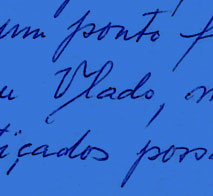 um ponto f
u Vlado, n
içados poss